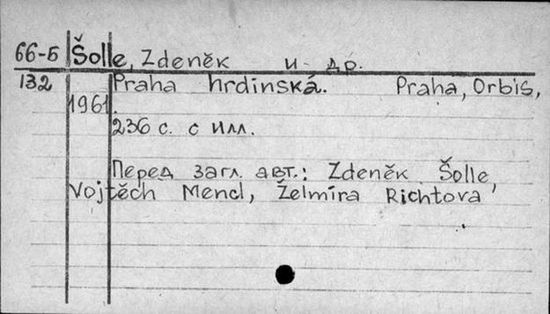 66-5 Šolle, Zdeněk и др.
132 Praha hrdinská. Praha, Orbis,
1961.
236 с. с илл.
Перед загл. авт.: Zdeněk Šolle,
Vojtěch Mencl, Želmíra Richtova